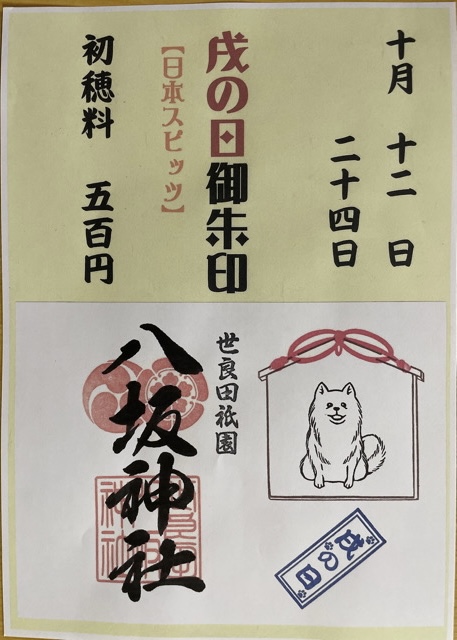 十月 十二日
二十四日
戌の日御朱印
【日本スピッツ】
初穂料 五百円
世良田祇園
八坂神社
戌の日